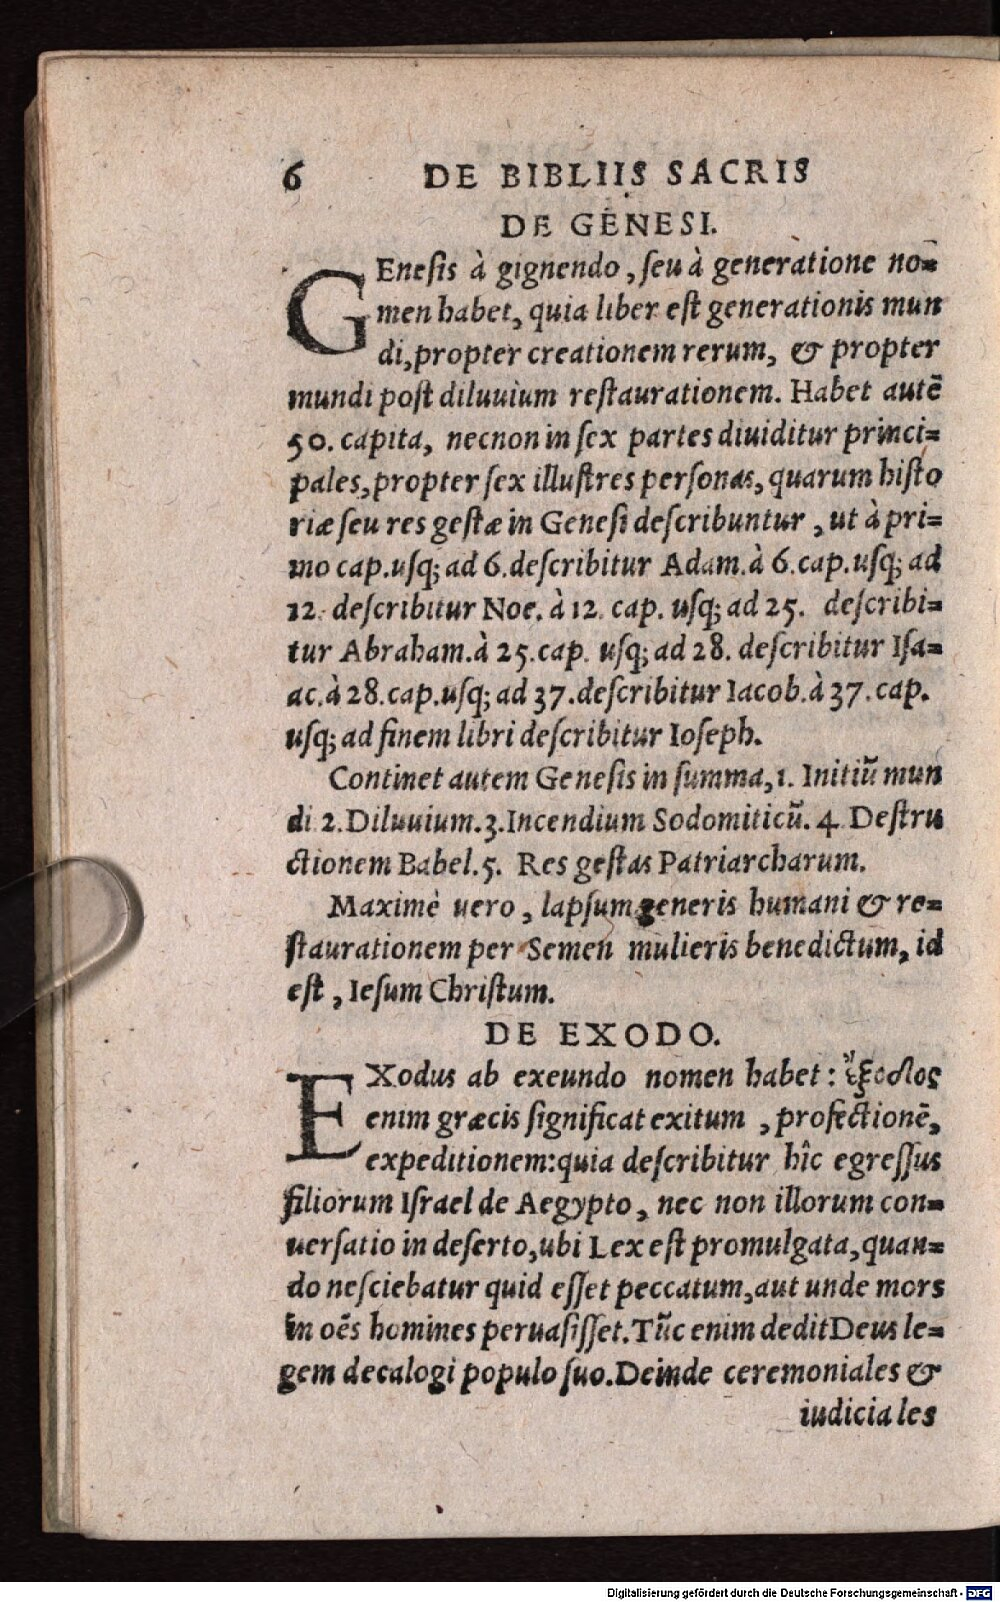 6 DE BIBLIIS SACRIS
DE GENESI.
GEneſis à gignendo, ſeu à generatione no=
men habet, quia liber eſt generationis mun
di, propter creationem rerum, & propter
mundi poſt diluuium reſtaurationem. Habet autē
50. capita, necnon in ſex partes diuiditur princi=
pales, propter ſex illuſtres perſonas, quarum hiſto
riæ ſeu res geſtæ in Geneſi deſcribuntur, ut à pri=
mo cap. uſq; ad 6. deſcribitur Adam. à 6. cap. uſq; ad
12. deſcribitur Noe. à 12. cap. uſq; ad 25. deſcribi=
tur Abraham. à 25. cap. uſq; ad 28. deſcribitur Iſa=
ac. à 28. cap. uſq; ad 37. deſcribitur Iacob. à 37. cap.
uſq; ad finem libri deſcribitur Ioſeph.
Continet autem Geneſis in ſumma, 1. Initiũ mun
di 2. Diluuium. 3. Incendium Sodomiticũ. 4 Deſtru
ctionem Babel. 5. Res geſtas Patriarcharum.
Maximè uero, lapſum generis humani & re=
ſtaurationem per Semen mulieris benedictum, id
eſt, Ieſum Chriſtum.
DE EXODO.
EXodus ab exeundo nomen habet: ἔξοδος
enim græcis ſignificat exitum, profectionē,
expeditionem: quia deſcribitur hîc egreſſus
filiorum Iſrael de Aegypto, nec non illorum con=
uerſatio in deſerto, ubi Lex eſt promulgata, quan=
do neſciebatur quid eſſet peccatum, aut unde mors
in oēs homines peruaſiſſet. Tũc enim dedit Deus le=
gem decalogi populo ſuo. Deinde ceremoniales &
iudiciales
Digitalisierung gefördert durch die Deutsche Forschungsgemeinschaft - DFG